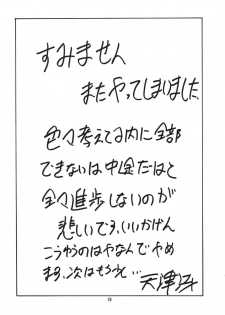 すみません
またやってしまいました
色々考えてる内に全部
できないは中途だはと
全々進歩しないのが
悲しいです、いいかげん
こうゆうのはやなんでやめ
ます、次はもう